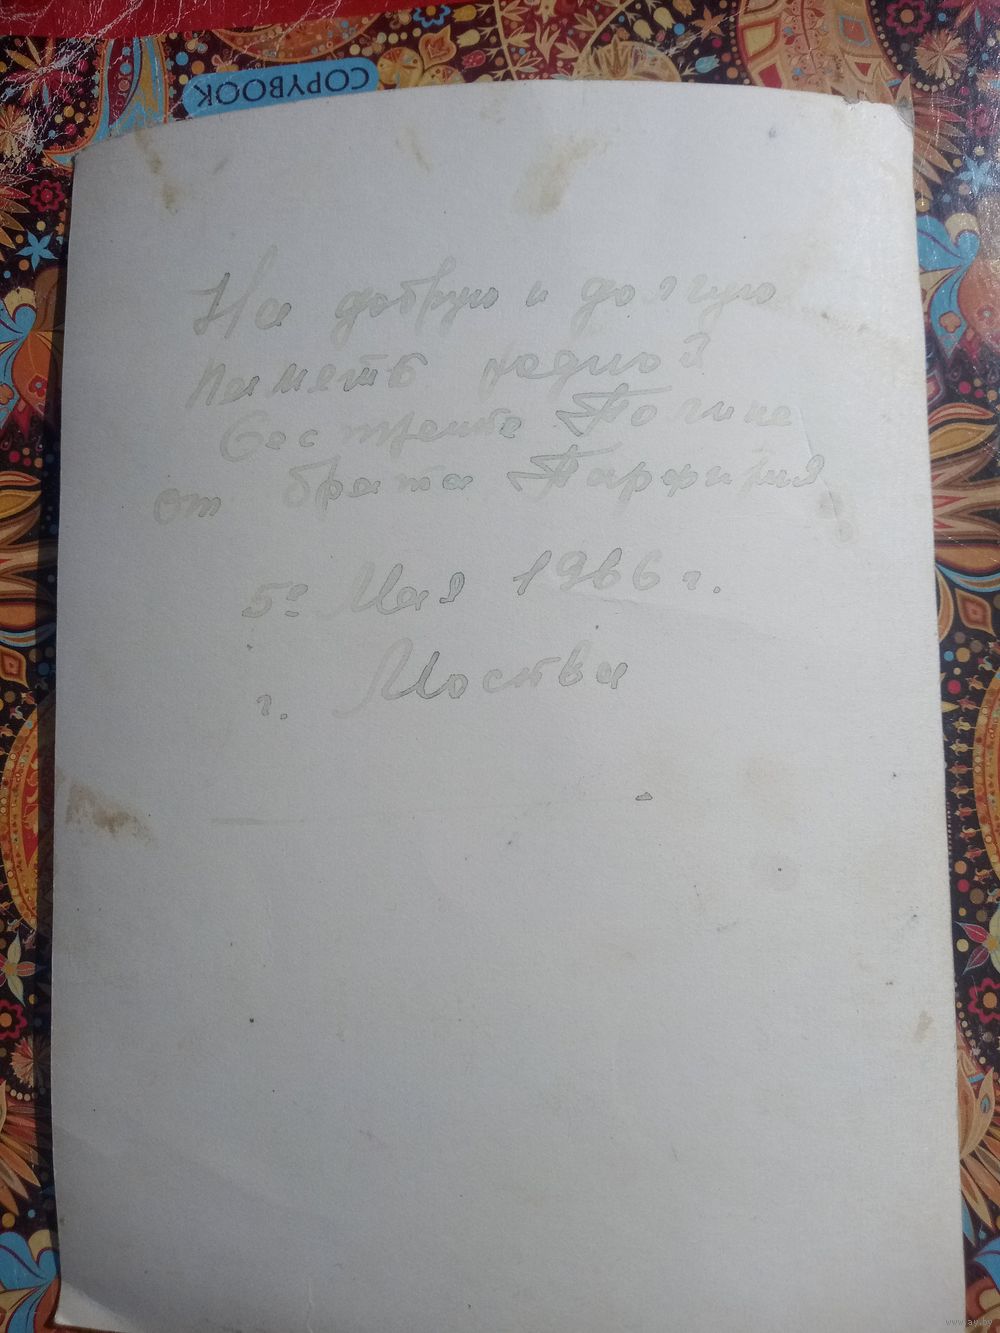 COPYBOOK
На добрую и долгую
память родной
Сестрёнке Полине
от брата Парфирия
5го Мая 1966 г.
г. Москва
www.ay.by